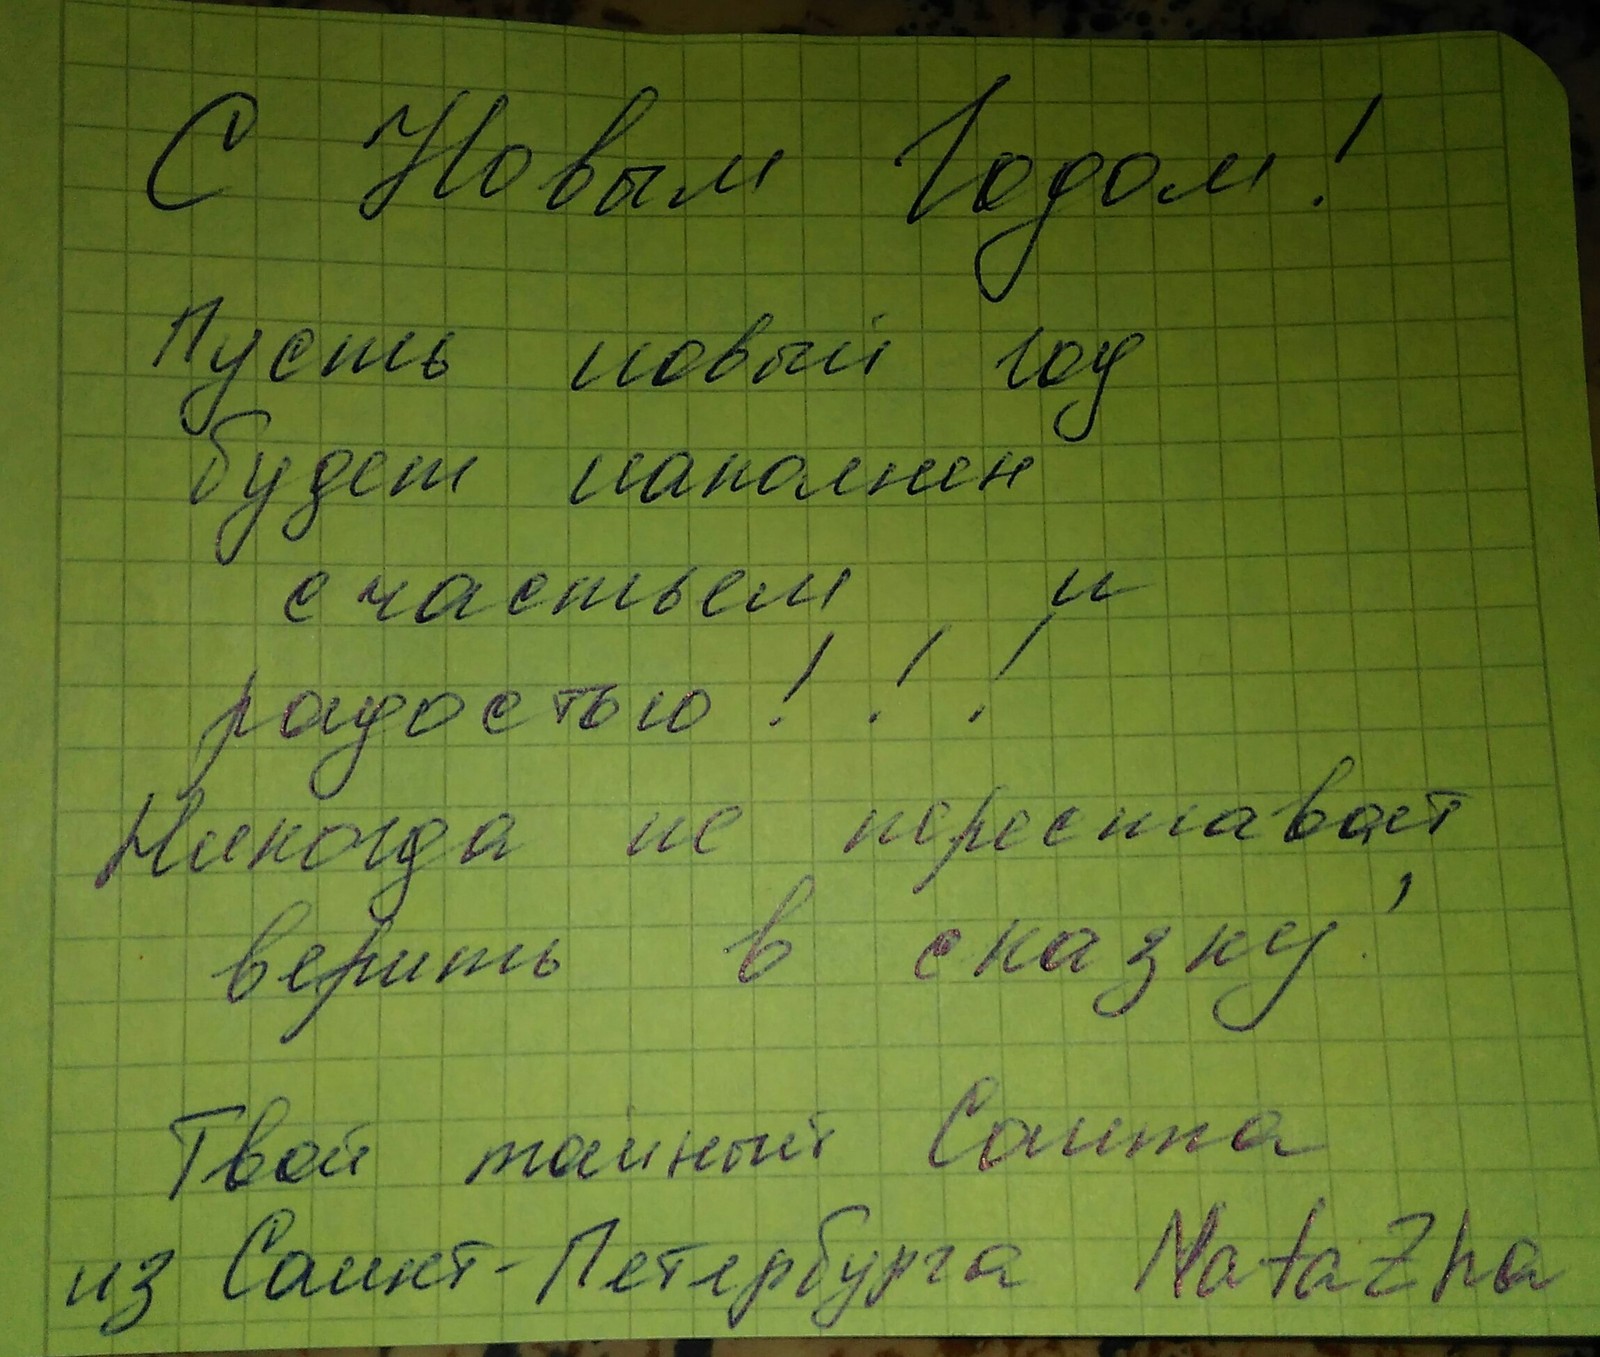 С Новым Годом!
Пусть новый год
будет наполнен
счастьем и
радостью!!!
Никогда не переставай
верить в сказку!
Твой тайный Санта
из Санкт-Петербурга NataZha